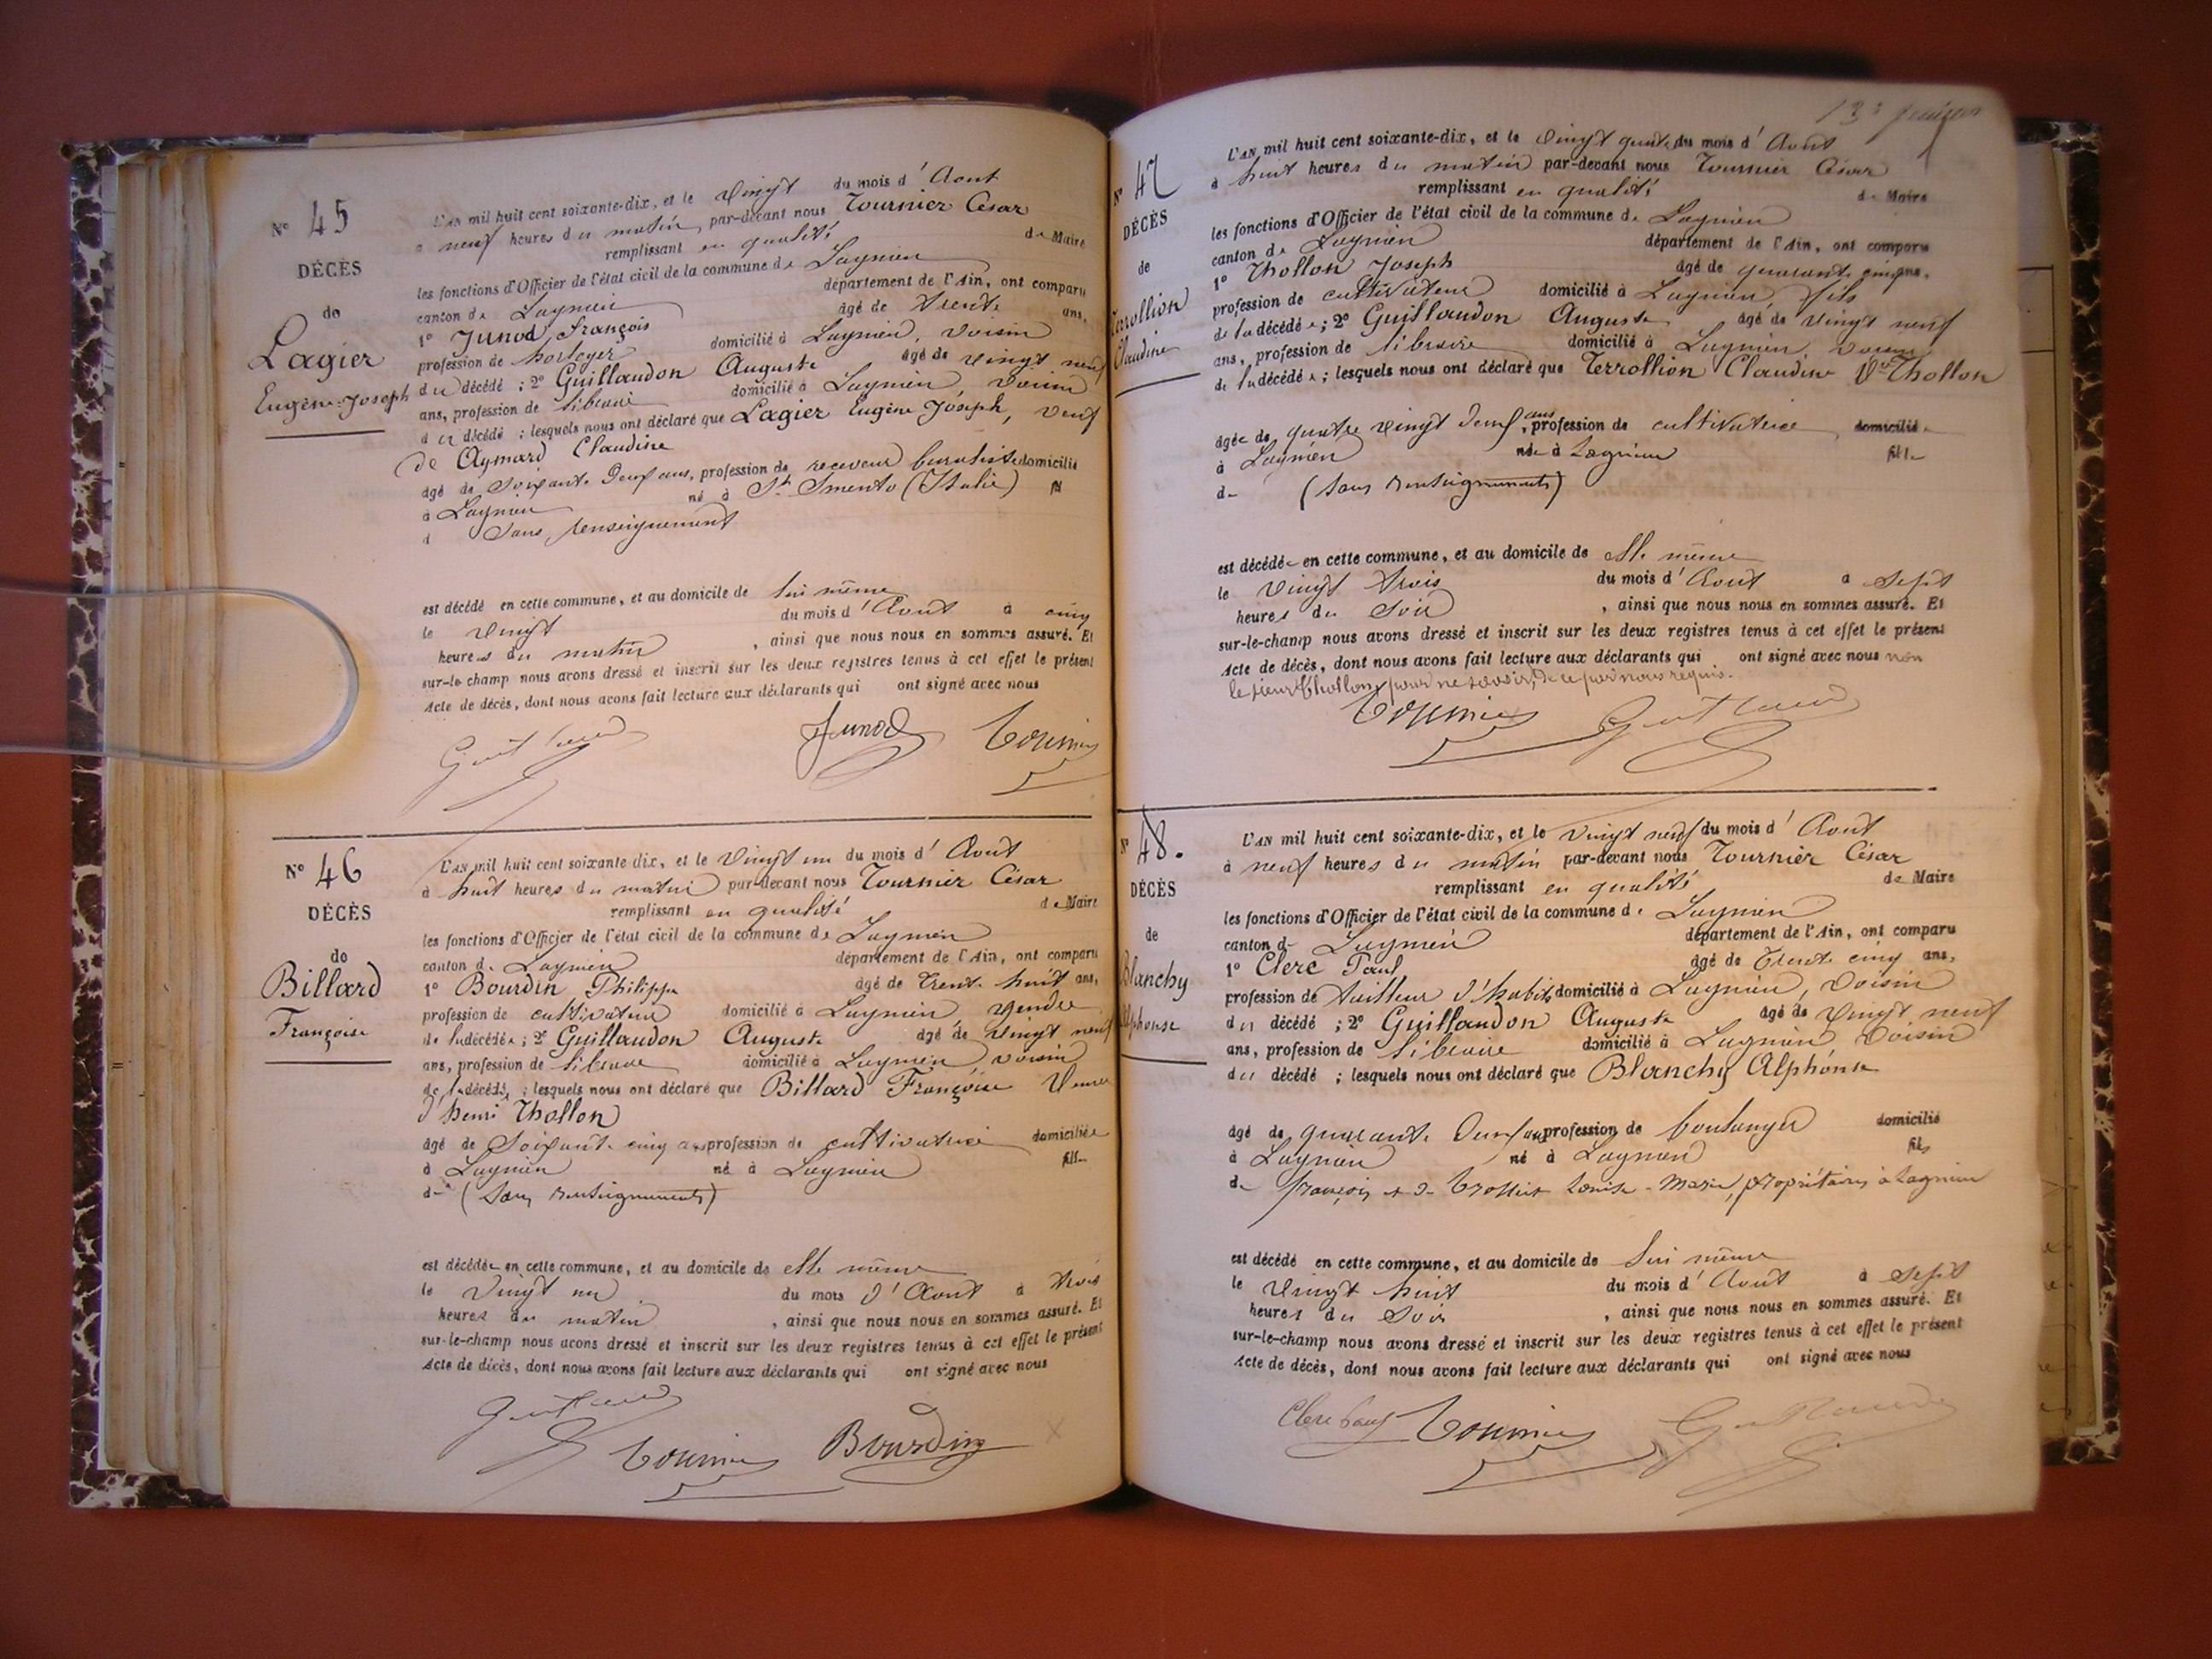 N° 45
DÉCÈS
de
Lagier
Eugène-Joseph
L'AN mil huit cent soixante-dix, et le Vingt du mois d'Aout
à neuf heures du matin par-devant nous Tournier César
remplissant en qualité de Maire
les fonctions d'Officier de l'état civil de la commune de Lagnieu
canton de Lagnieu département de l'Ain, ont comparu
1° Junod François âgé de trente ans,
profession de horloger domicilié à Lagnieu, voisin
du décédé ; 2° Guillaudon Auguste âgé de vingt neuf
ans, profession de libraire domicilié à Lagnieu voisin
du décédé ; lesquels nous ont déclaré que Lagier Eugène Joseph, veuf
de Aymard Claudine
âgé de soixante deux ans, profession de receveur buraliste domicilié
à Lagnieu né à St (Italie) fil
d Sans renseignement
est décédé en cette commune, et au domicile de lui même
le vingt du mois d'Aout à cinq
heures du matin, ainsi que nous nous en sommes assuré. Et
sur-le-champ nous avons dressé et inscrit sur les deux registres tenus à cet effet le présent
Acte de décès, dont nous avons fait lecture aux déclarants qui ont signé avec nous
Guillaudon Junod Tournier
N° 46
DÉCÈS
de
Billard
Françoise
L'AN mil huit cent soixante-dix, et le Vingt un du mois d'Aout
à huit heures du matin par-devant nous Tournier César
remplissant en qualité de Maire
les fonctions d'Officier de l'état civil de la commune de Lagnieu
canton de Lagnieu département de l'Ain, ont comparu
1° Bourdin Philippe âgé de trente huit ans,
profession de cultivateur domicilié à Lagnieu gendre
de la décédée ; 2° Guillaudon Auguste âgé de vingt neuf
ans, profession de libraire domicilié à Lagnieu voisin
de la décédée ; lesquels nous ont déclaré que Billard Françoise Veuve
d'henri Thollon
âgé de soixante cinq ans profession de cultivatrice domiciliée
à Lagnieu né à Lagnieu fille
de (Sans renseignements)
est décédée en cette commune, et au domicile de elle même
le vingt un du mois d'Aout à trois
heures du matin, ainsi que nous nous en sommes assuré. Et
sur-le-champ nous avons dressé et inscrit sur les deux registres tenus à cet effet le présent
Acte de décès, dont nous avons fait lecture aux déclarants qui ont signé avec nous
Guillaudon Tournier Bourdin
N° 47
DÉCÈS
de
Terrollion
Claudine
L'AN mil huit cent soixante-dix, et le vingt quatre du mois d'Aout
à huit heures du matin par-devant nous Tournier César
remplissant en qualité de Maire
les fonctions d'Officier de l'état civil de la commune de Lagnieu
canton de Lagnieu département de l'Ain, ont comparu
1° Thollon Joseph âgé de quarante cinq ans,
profession de cultivateur domicilié à Lagnieu, fils
de la décédée ; 2° Guillaudon Auguste âgé de vingt neuf
ans, profession de libraire domicilié à Lagnieu, voisin
de la décédée ; lesquels nous ont déclaré que Terrollion Claudine Vve Thollon
âgée de quatre vingt deux ans, profession de cultivatrice domiciliée
à Lagnieu née à Lagnieu fille
de (Sans renseignements)
est décédée en cette commune, et au domicile de elle même
le vingt trois du mois d'Aout à sept
heures du soir, ainsi que nous nous en sommes assuré. Et
sur-le-champ nous avons dressé et inscrit sur les deux registres tenus à cet effet le présent
Acte de décès, dont nous avons fait lecture aux déclarants qui ont signé avec nous non
le sieur Thollon pour ne savoir, de ce par nous requis.
Tournier Guillaudon
N° 48.
DÉCÈS
de
Blanchy
Alphonse
L'AN mil huit cent soixante-dix, et le vingt neuf du mois d'Aout
à neuf heures du matin par-devant nous Tournier César
remplissant en qualité de Maire
les fonctions d'Officier de l'état civil de la commune de Lagnieu
canton de Lagnieu département de l'Ain, ont comparu
1° Clerc Paul âgé de trente cinq ans,
profession de tailleur d'habits domicilié à Lagnieu, voisin
du décédé ; 2° Guillaudon Auguste âgé de vingt neuf
ans, profession de libraire domicilié à Lagnieu voisin
du décédé ; lesquels nous ont déclaré que Blanchy Alphonse
âgé de quarante deux ans profession de boulanger domicilié
à Lagnieu né à Lagnieu fils
de françois et de Trollier Louise-Marie, propriétaires à Lagnieu
est décédé en cette commune, et au domicile de lui même
le vingt huit du mois d'Aout à sept
heures du soir, ainsi que nous nous en sommes assuré. Et
sur-le-champ nous avons dressé et inscrit sur les deux registres tenus à cet effet le présent
Acte de décès, dont nous avons fait lecture aux déclarants qui ont signé avec nous
Clerc Paul Tournier Guillaudon